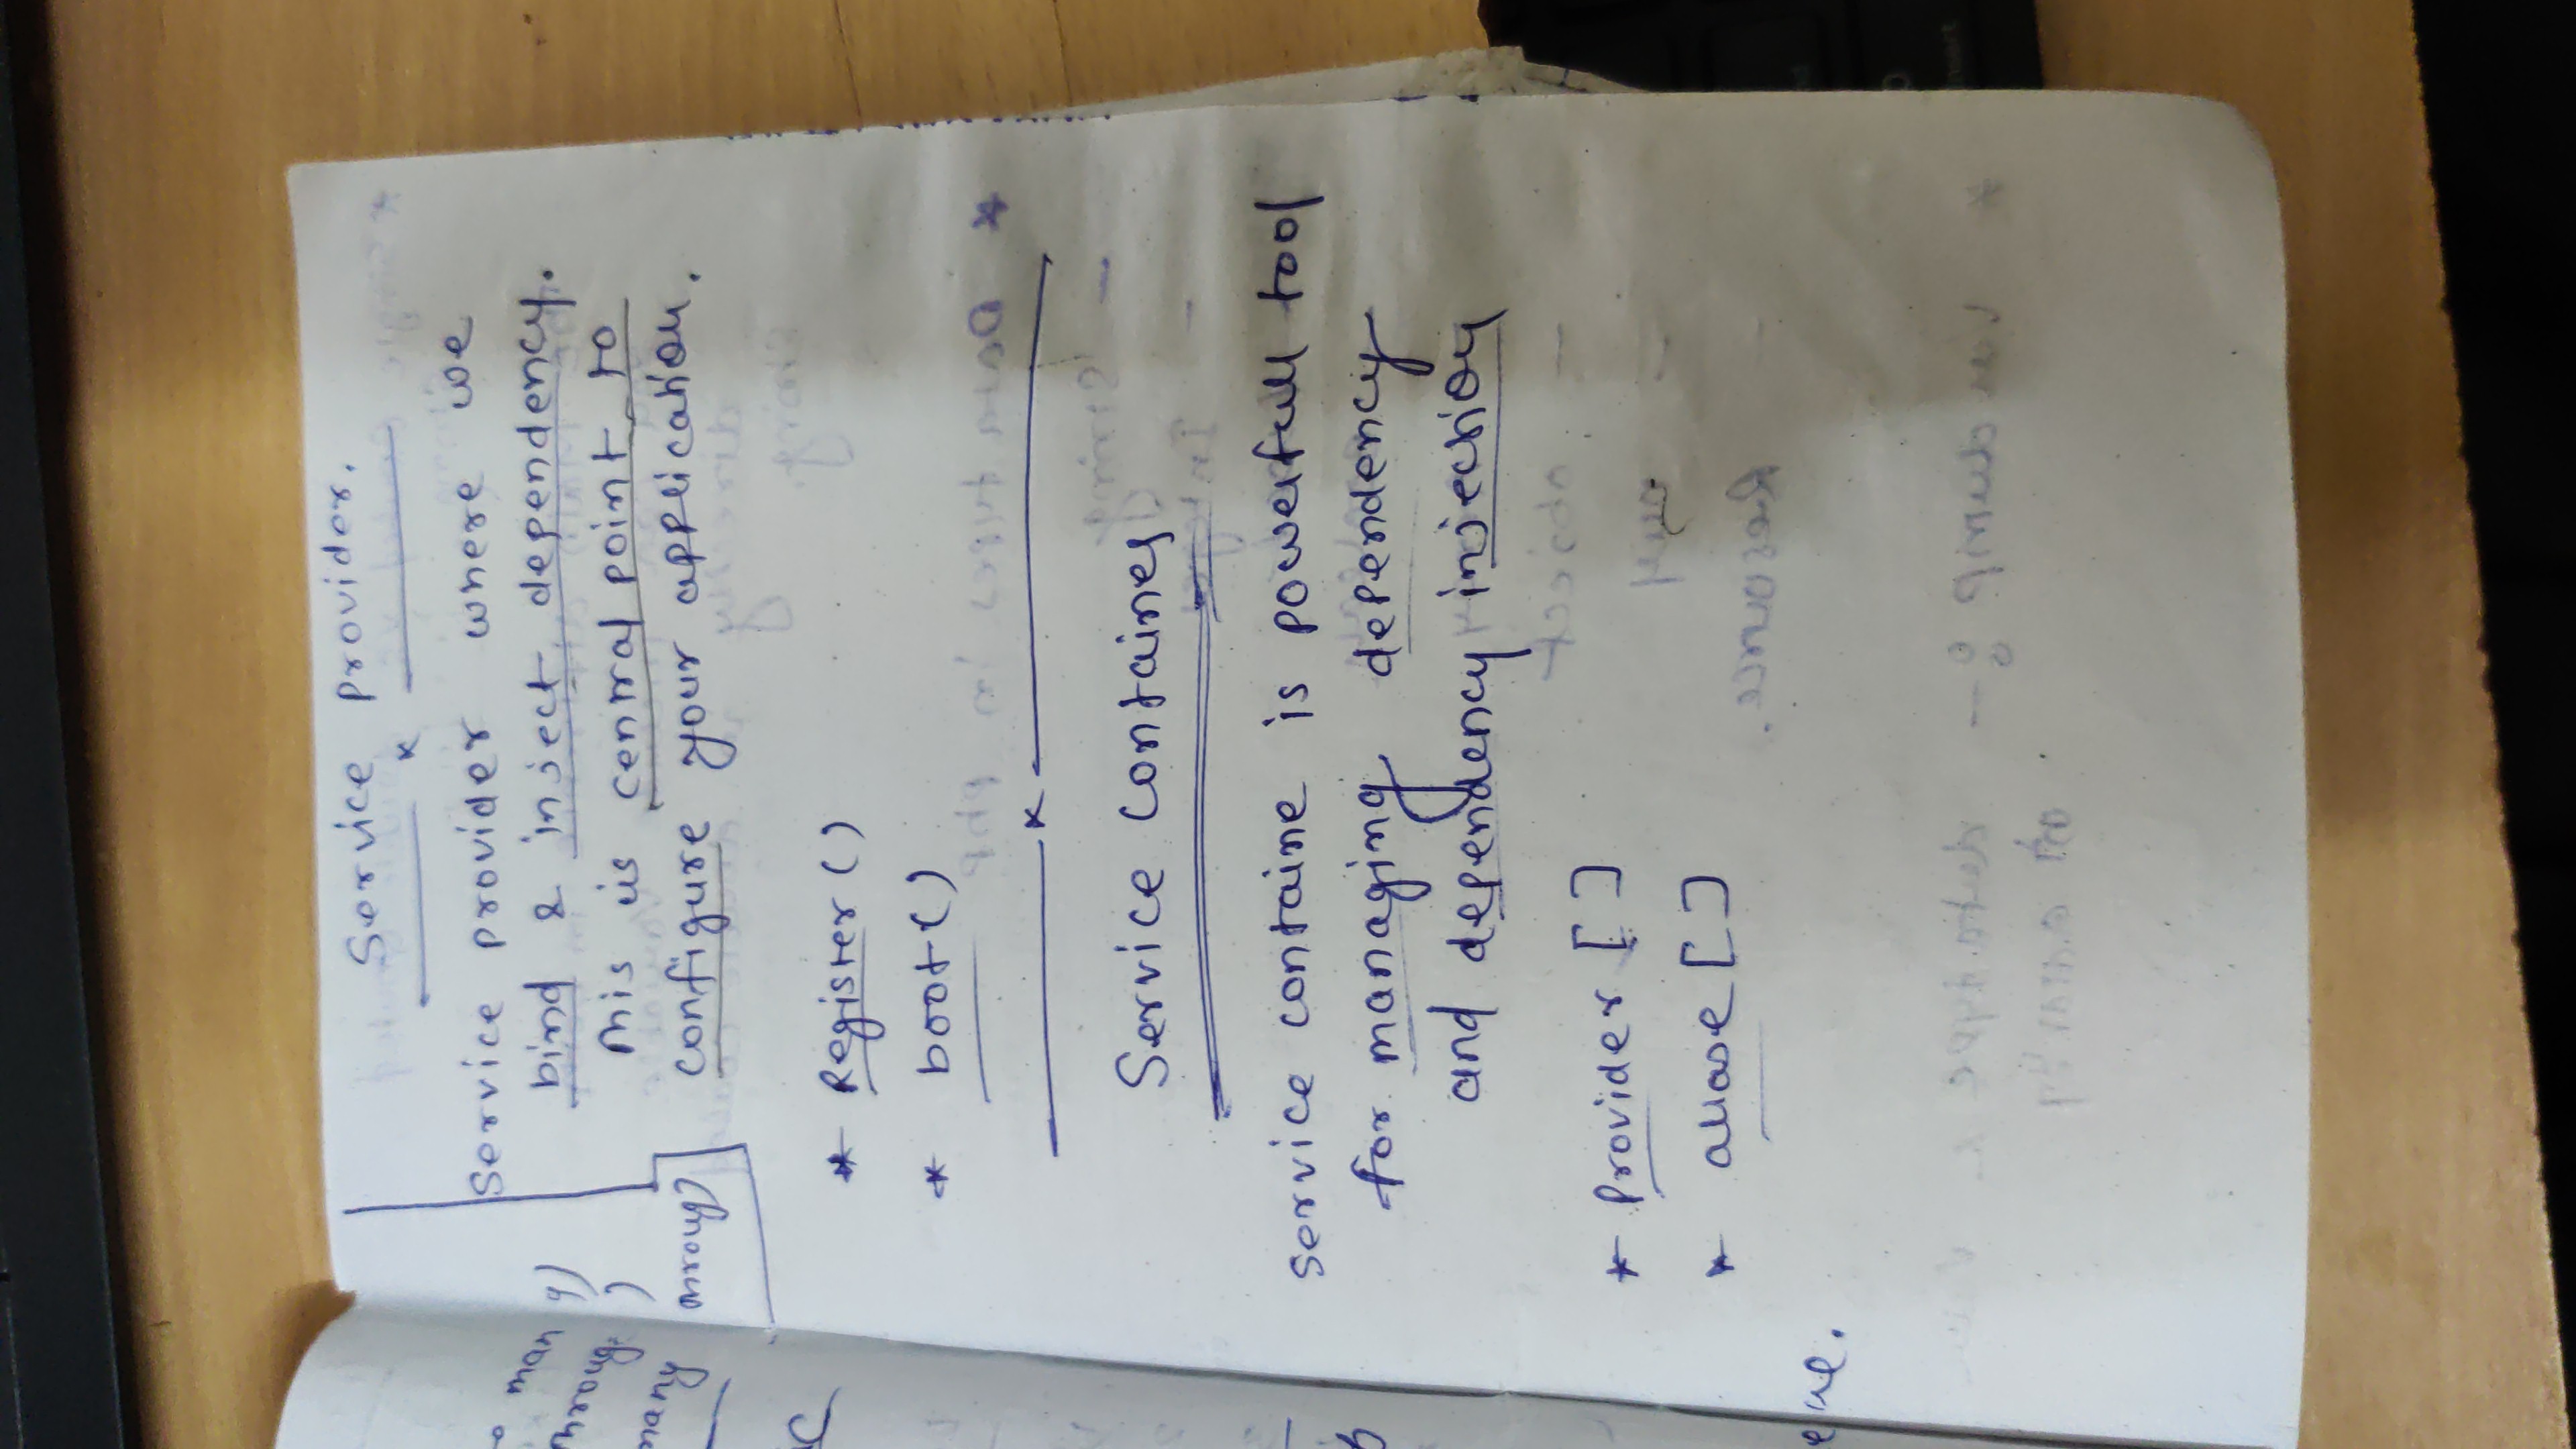 Service Provider.
Service provider where we
bind & inject dependency.
This is central point to
configure your application.
* Register ()
* boot ()
Service Container
service containe is powerfull tool
for managing dependency
and dependency injection
* Provider [ ]
* aliase [ ]
o man y)
throug )
many throug)